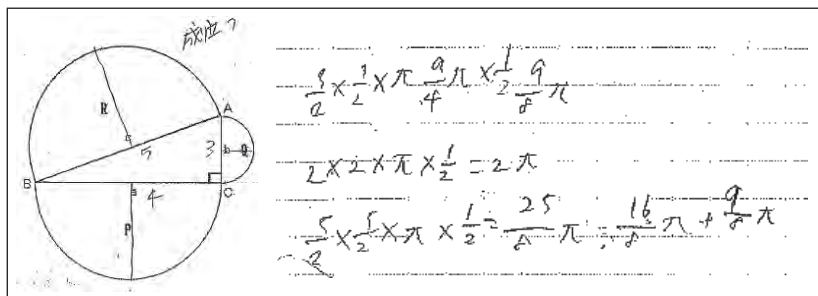 成立?
R
A
5
3
b
Q
B
a
4
C
P
3/2 × 3/2 × π 9/4 π × 1/2 9/8 π
2 × 2 × π × 1/2 = 2π
5/2 × 5/2 × π × 1/2 = 25/8 π = 16/8 π + 9/8 π